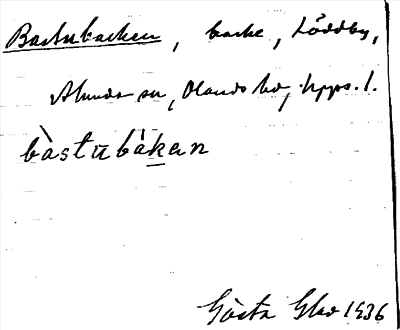 Bastubacken, backe, Löddby,
Alunda sn, Olands hd, Upps. l.
bàstubàkan
Gösta Glad 1936